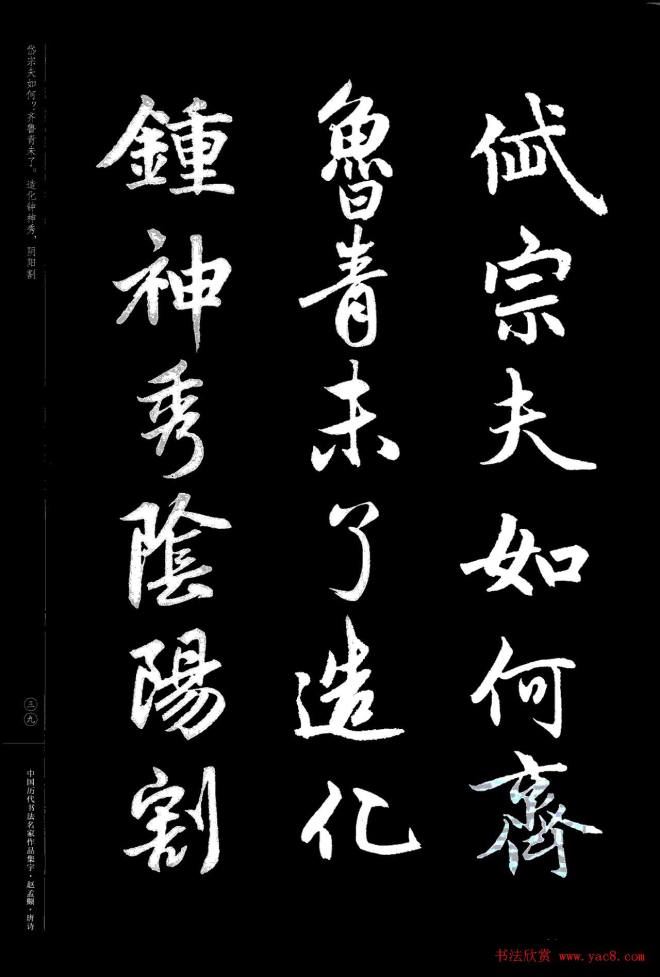 岱宗夫如何齊
魯青未了造化
鍾神秀陰陽割
岱宗夫如何?齐鲁青未了。造化钟神秀,阴阳割
三九
中国历代书法名家作品集字·赵孟頫·唐诗
书法欣赏 www.yac8.com